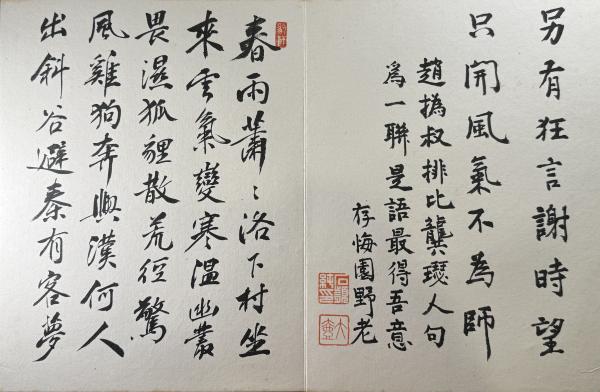 另有狂言謝時望
只開風氣不為師
趙撝叔排比龔璱人句
為一聯是語最得吾意
存悔園野老
春雨蕭〻洛下村坐
來雲氣變寒溫幽叢
畏濕狐貍散荒徑驚
風雞狗奔興漢何人
出斜谷避秦有客夢